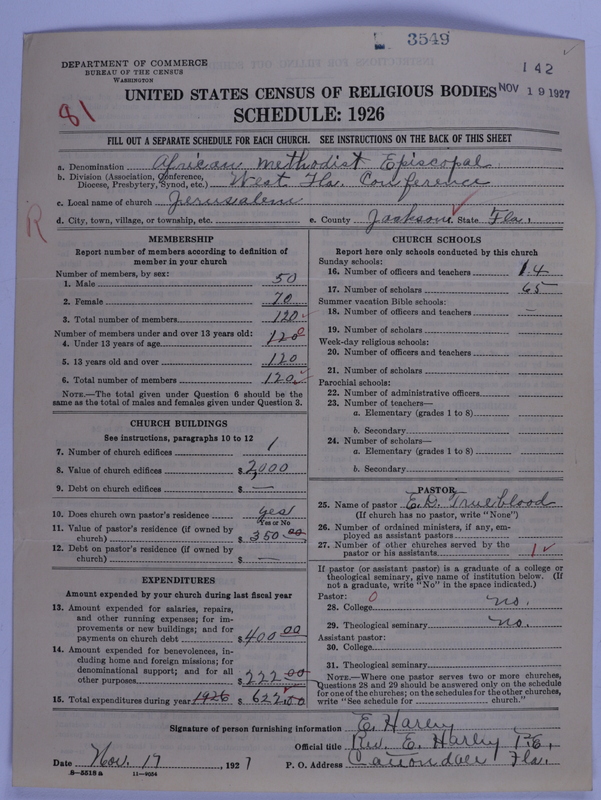 3549
DEPARTMENT OF COMMERCE
BUREAU OF THE CENSUS
WASHINGTON
142
NOV 19 1927
81
UNITED STATES CENSUS OF RELIGIOUS BODIES
SCHEDULE: 1926
FILL OUT A SEPARATE SCHEDULE FOR EACH CHURCH. SEE INSTRUCTIONS ON THE BACK OF THIS SHEET
a. Denomination African Methodist Episcopal
b. Division (Association, Conference, Diocese, Presbytery, Synod, etc.) West Fla. Conference
c. Local name of church Jerusalem
d. City, town, village, or township, etc.
e. County Jackson State Fla.
R
MEMBERSHIP
Report number of members according to definition of
member in your church
Number of members, by sex:
1. Male 50
2. Female 70
3. Total number of members 120
Number of members under and over 13 years old:
4. Under 13 years of age 120 0
5. 13 years old and over 120
6. Total number of members 120
NOTE.—The total given under Question 6 should be
same as the total of males and females given under Question 3.
CHURCH BUILDINGS
See instructions, paragraphs 10 to 12
7. Number of church edifices 1
8. Value of church edifices $2,000
9. Debt on church edifices $ —
10. Does church own pastor's residence yes
Yes or No
11. Value of pastor's residence (if owned by
church) $350.00
12. Debt on pastor's residence (if owned by
church) $ —
EXPENDITURES
Amount expended by your church during last fiscal year
13. Amount expended for salaries, repairs,
and other running expenses; for im-
provements or new buildings; and for
payments on church debt $400.00
14. Amount expended for benevolences, in-
cluding home and foreign missions; for
denominational support; and for all
other purposes $222.00
15. Total expenditures during year 1926 $622.00
CHURCH SCHOOLS
Report here only schools conducted by this church
Sunday schools:
16. Number of officers and teachers 14
17. Number of scholars 65
Summer vacation Bible schools:
18. Number of officers and teachers —
19. Number of scholars
Week-day religious schools:
20. Number of officers and teachers
21. Number of scholars
Parochial schools:
22. Number of administrative officers
23. Number of teachers—
a. Elementary (grades 1 to 8)
b. Secondary
24. Number of scholars—
a. Elementary (grades 1 to 8)
b. Secondary
PASTOR
25. Name of pastor E. D. Trueblood
(If church has no pastor, write "None")
26. Number of ordained ministers, if any, em-
ployed as assistant pastors
27. Number of other churches served by the
pastor or his assistants 1
If pastor (or assistant pastor) is a graduate of a college or
theological seminary, give name of institution below. (If
not a graduate, write "No" in the space indicated.)
Pastor: 0
28. College no.
29. Theological seminary no.
Assistant pastor:
30. College
31. Theological seminary
NOTE.—Where one pastor serves two or more churches,
Questions 28 and 29 should be answered only on the schedule
for one of the churches; on the schedules for the other churches,
write "See schedule for church."
Signature of person furnishing information E. Harley
Official title Rev. E. Harley P.E.
Date Nov. 17, 1927 P. O. Address Fla.
8-5518 a 11-9054